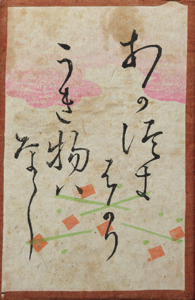 あか津き
はかり
うき物ハ
なし